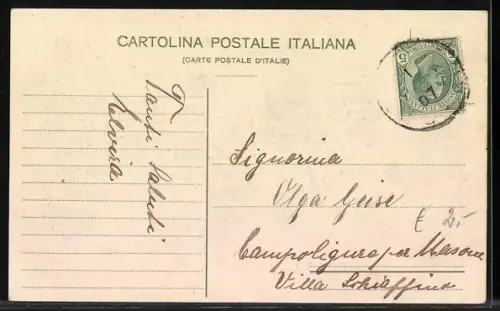 CARTOLINA POSTALE ITALIANA
(CARTE POSTALE D'ITALIE)
Tanti saluti
Elvira
Signorina
Olga Geise
Campoligure per Masone
Villa Schiaffino
€ 2,-
07